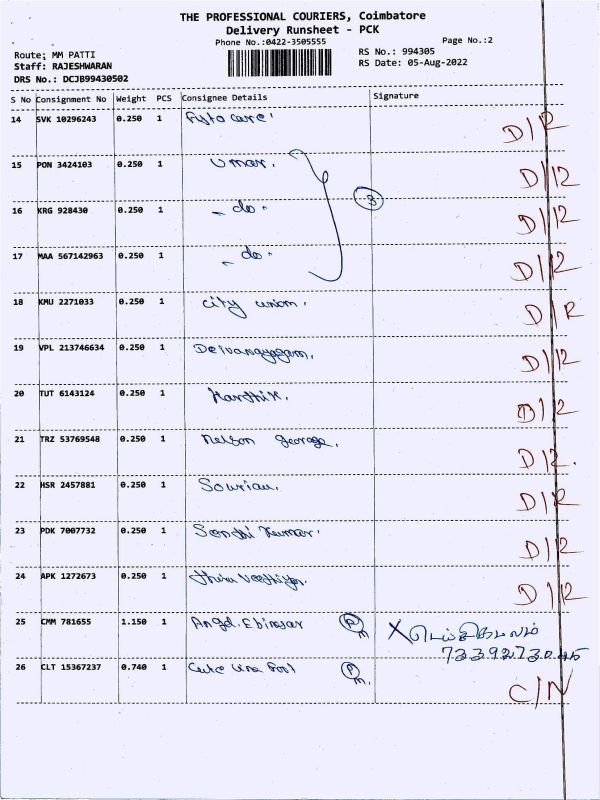 THE PROFESSIONAL COURIERS, Coimbatore
Delivery Runsheet - PCK
Phone No.:0422-3505555
Page No.:2
Route: MM PATTI
RS No.: 994305
Staff: RAJESHWARAN
RS Date: 05-Aug-2022
DRS No.: DCJB99430502
S No Consignment No Weight PCS Consignee Details Signature
14 SVK 10296243 0.250 1 D/R
15 PON 3424103 0.250 1 Umar. D/R
16 KRG 928430 0.250 1 - do " 3 D/R
17 MAA 567142963 0.250 1 - do " D/R
18 KMU 2271033 0.250 1 City union. D/R
19 VPL 213746634 0.250 1 Deivanayagam. D/R
20 TUT 6143124 0.250 1 Karthik. D/R
21 TRZ 53769548 0.250 1 Nelson george. D/R.
22 HSR 2457881 0.250 1 D/R
23 PDK 7007732 0.250 1 Kumar. D/R
24 APK 1272673 0.250 1 D/R
25 CMM 781655 1.150 1 Angel. Ebinesar Pm X
7339273045
26 CLT 15367237 0.740 1 Pm. C/N